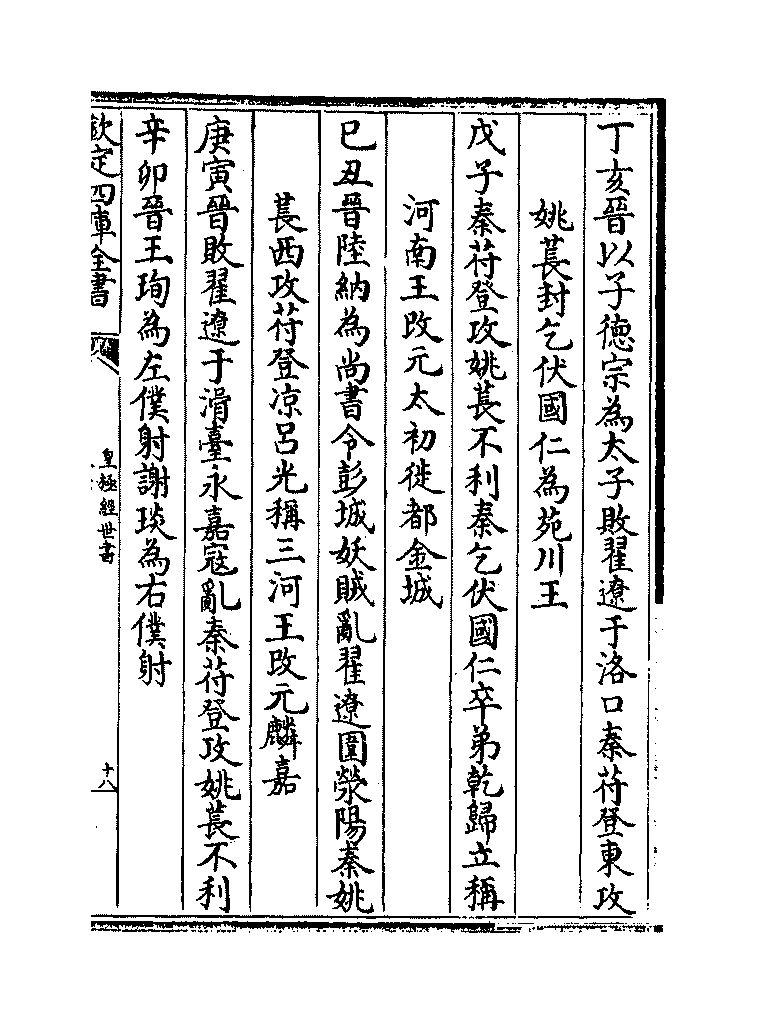 丁亥晉以子德宗為太子敗翟遼于洛口秦苻登東攻
姚萇封乞伏國仁為苑川王
戊子秦苻登攻姚萇不利秦乞伏國仁卒弟乾歸立稱
河南王改元太初徙都金城
己丑晉陸納為尚書令彭城妖賊亂翟遼圍滎陽秦姚
萇西攻苻登凉呂光稱三河王改元麟嘉
庚寅晉敗翟遼于滑臺永嘉寇亂秦苻登攻姚萇不利
辛卯晉王珣為左僕射謝琰為右僕射
欽定四庫全書
皇極經世書
十八